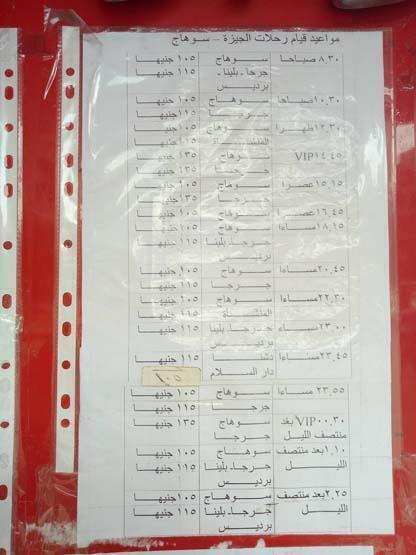 مواعيد قيام رحلات الجيزة - سوهاج
٨.٣٠ صباحا سوهاج ١٠٥ جنيها
جرجا - بلينا - ١١٥ جنيها
برديس
١٠.٣٠ صباحا سوهاج ١٠٥ جنيها
جرجا ١١٥ جنيها
١٢.٣٠ ظهرا سوهاج ١٠٥ جنيها
١١٥ جنيها
VIP ١٤.٤٥ سوهاج ١٣٥ جنيها
جرجا ١٣٥ جنيها
١٥.١٥ عصرا سوهاج ١٠٥ جنيها
جرجا
١٦.٤٥ عصرا سوهاج ١٠٥ جنيها
١٨.١٥ مساءا سوهاج ١٠٥ جنيها
جرجا - بلينا ١١٥ جنيها
برديس
٢٠.٤٥ مساءا سوهاج ١٠٥ جنيها
جرجا ١١٥ جنيها
٢٢.٣٠ مساءا سوهاج ١٠٥ جنيها
المنشأة ١١٥ جنيها
٢٣.٠٠ مساء جرجا - بلينا ١١٥ جنيها
برديس
٢٣.٤٥ مساءا ١١٥ جنيها
دار السلام ١٠٥
٢٣.٥٥ مساءا سوهاج ١٠٥ جنيها
جرجا ١١٥ جنيها
VIP ٠٠.٣٠ بعد سوهاج ١٣٥ جنيها
منتصف الليل جرجا
١.١٠ بعد منتصف سوهاج ١٠٥ جنيها
الليل جرجا - بلينا ١١٥ جنيها
برديس
٢.٢٥ بعد منتصف سوهاج ١٠٥ جنيها
الليل جرجا - بلينا ١١٥ جنيها
برديس